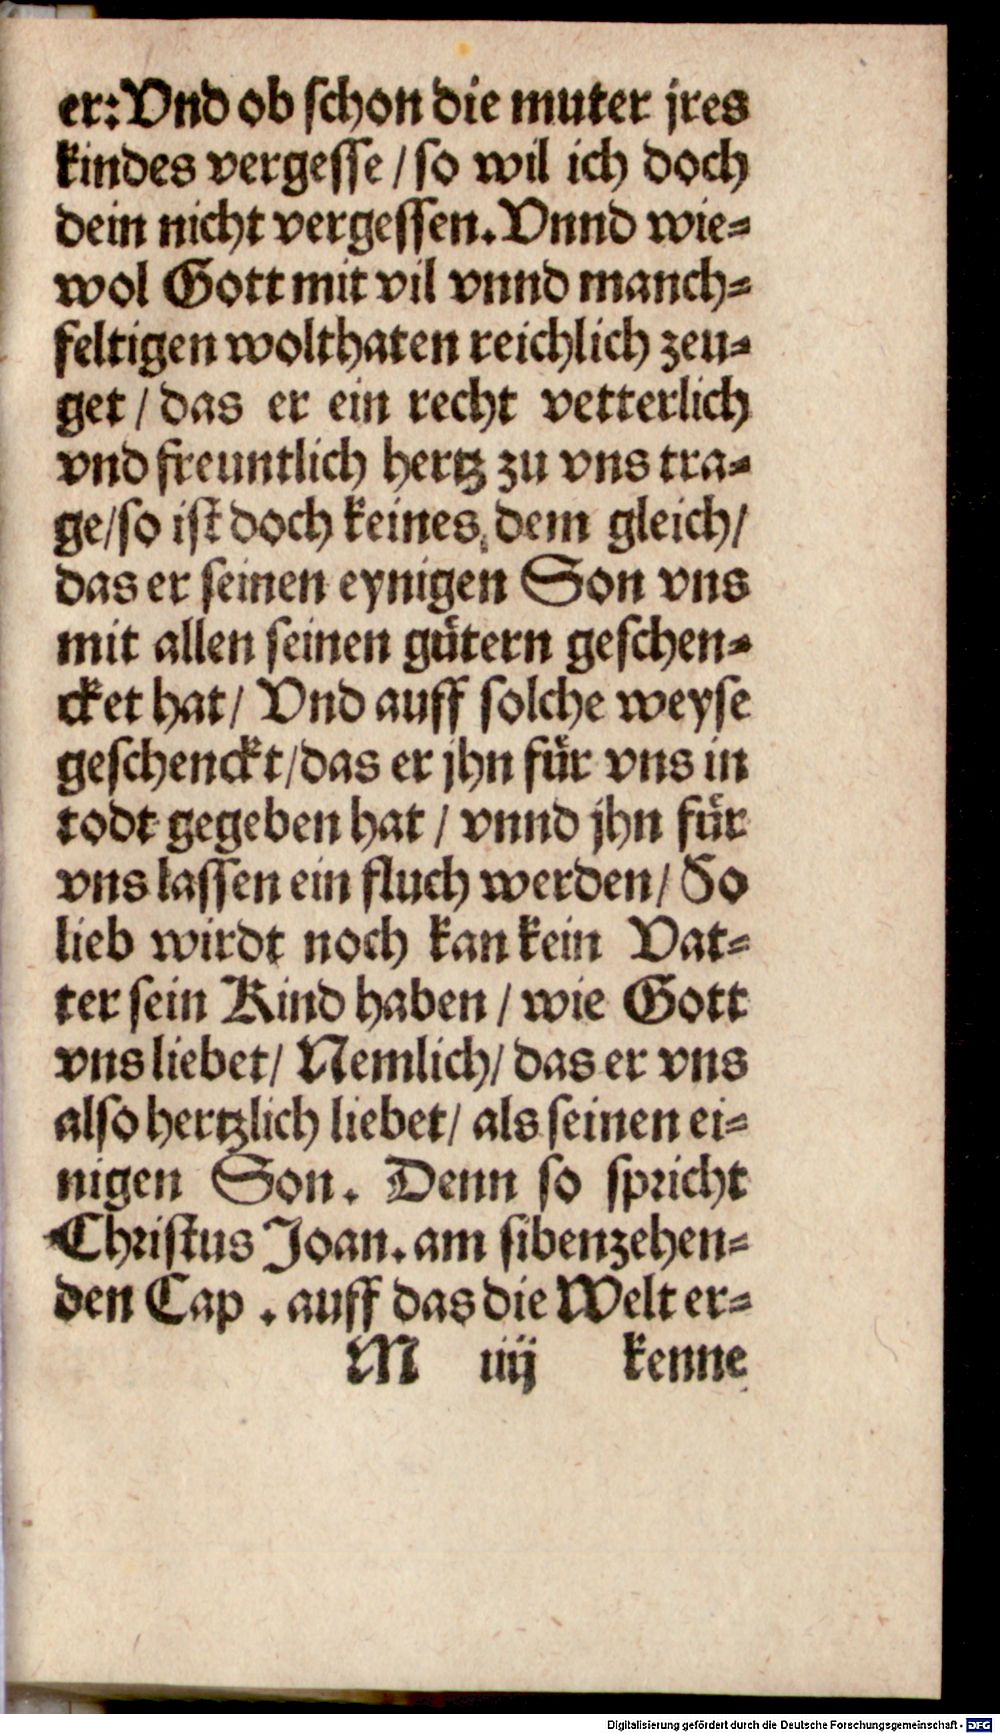 er: Vnd ob schon die muter jres
kindes vergesse / so wil ich doch
dein nicht vergessen. Vnnd wie=
wol Gott mit vil vnnd manch=
feltigen wolthaten reichlich zeu=
get / das er ein recht vetterlich
vnd freuntlich hertz zu vns tra=
ge/so ist doch keines dem gleich/
das er seinen eynigen Son vns
mit allen seinen gütern geschen=
cket hat/ Vnd auff solche weyse
geschenckt/das er jhn für vns in
todt gegeben hat / vnnd jhn für
vns lassen ein fluch werden/ So
lieb wirdt noch kan kein Vat=
ter sein Kind haben / wie Gott
vns liebet/ Nemlich/ das er vns
also hertzlich liebet/ als seinen ei=
nigen Son. Denn so spricht
Christus Joan. am sibenzehen=
den Cap. auff das die Welt er=
M iiij kenne
Digitalisierung gefördert durch die Deutsche Forschungsgemeinschaft - DFG